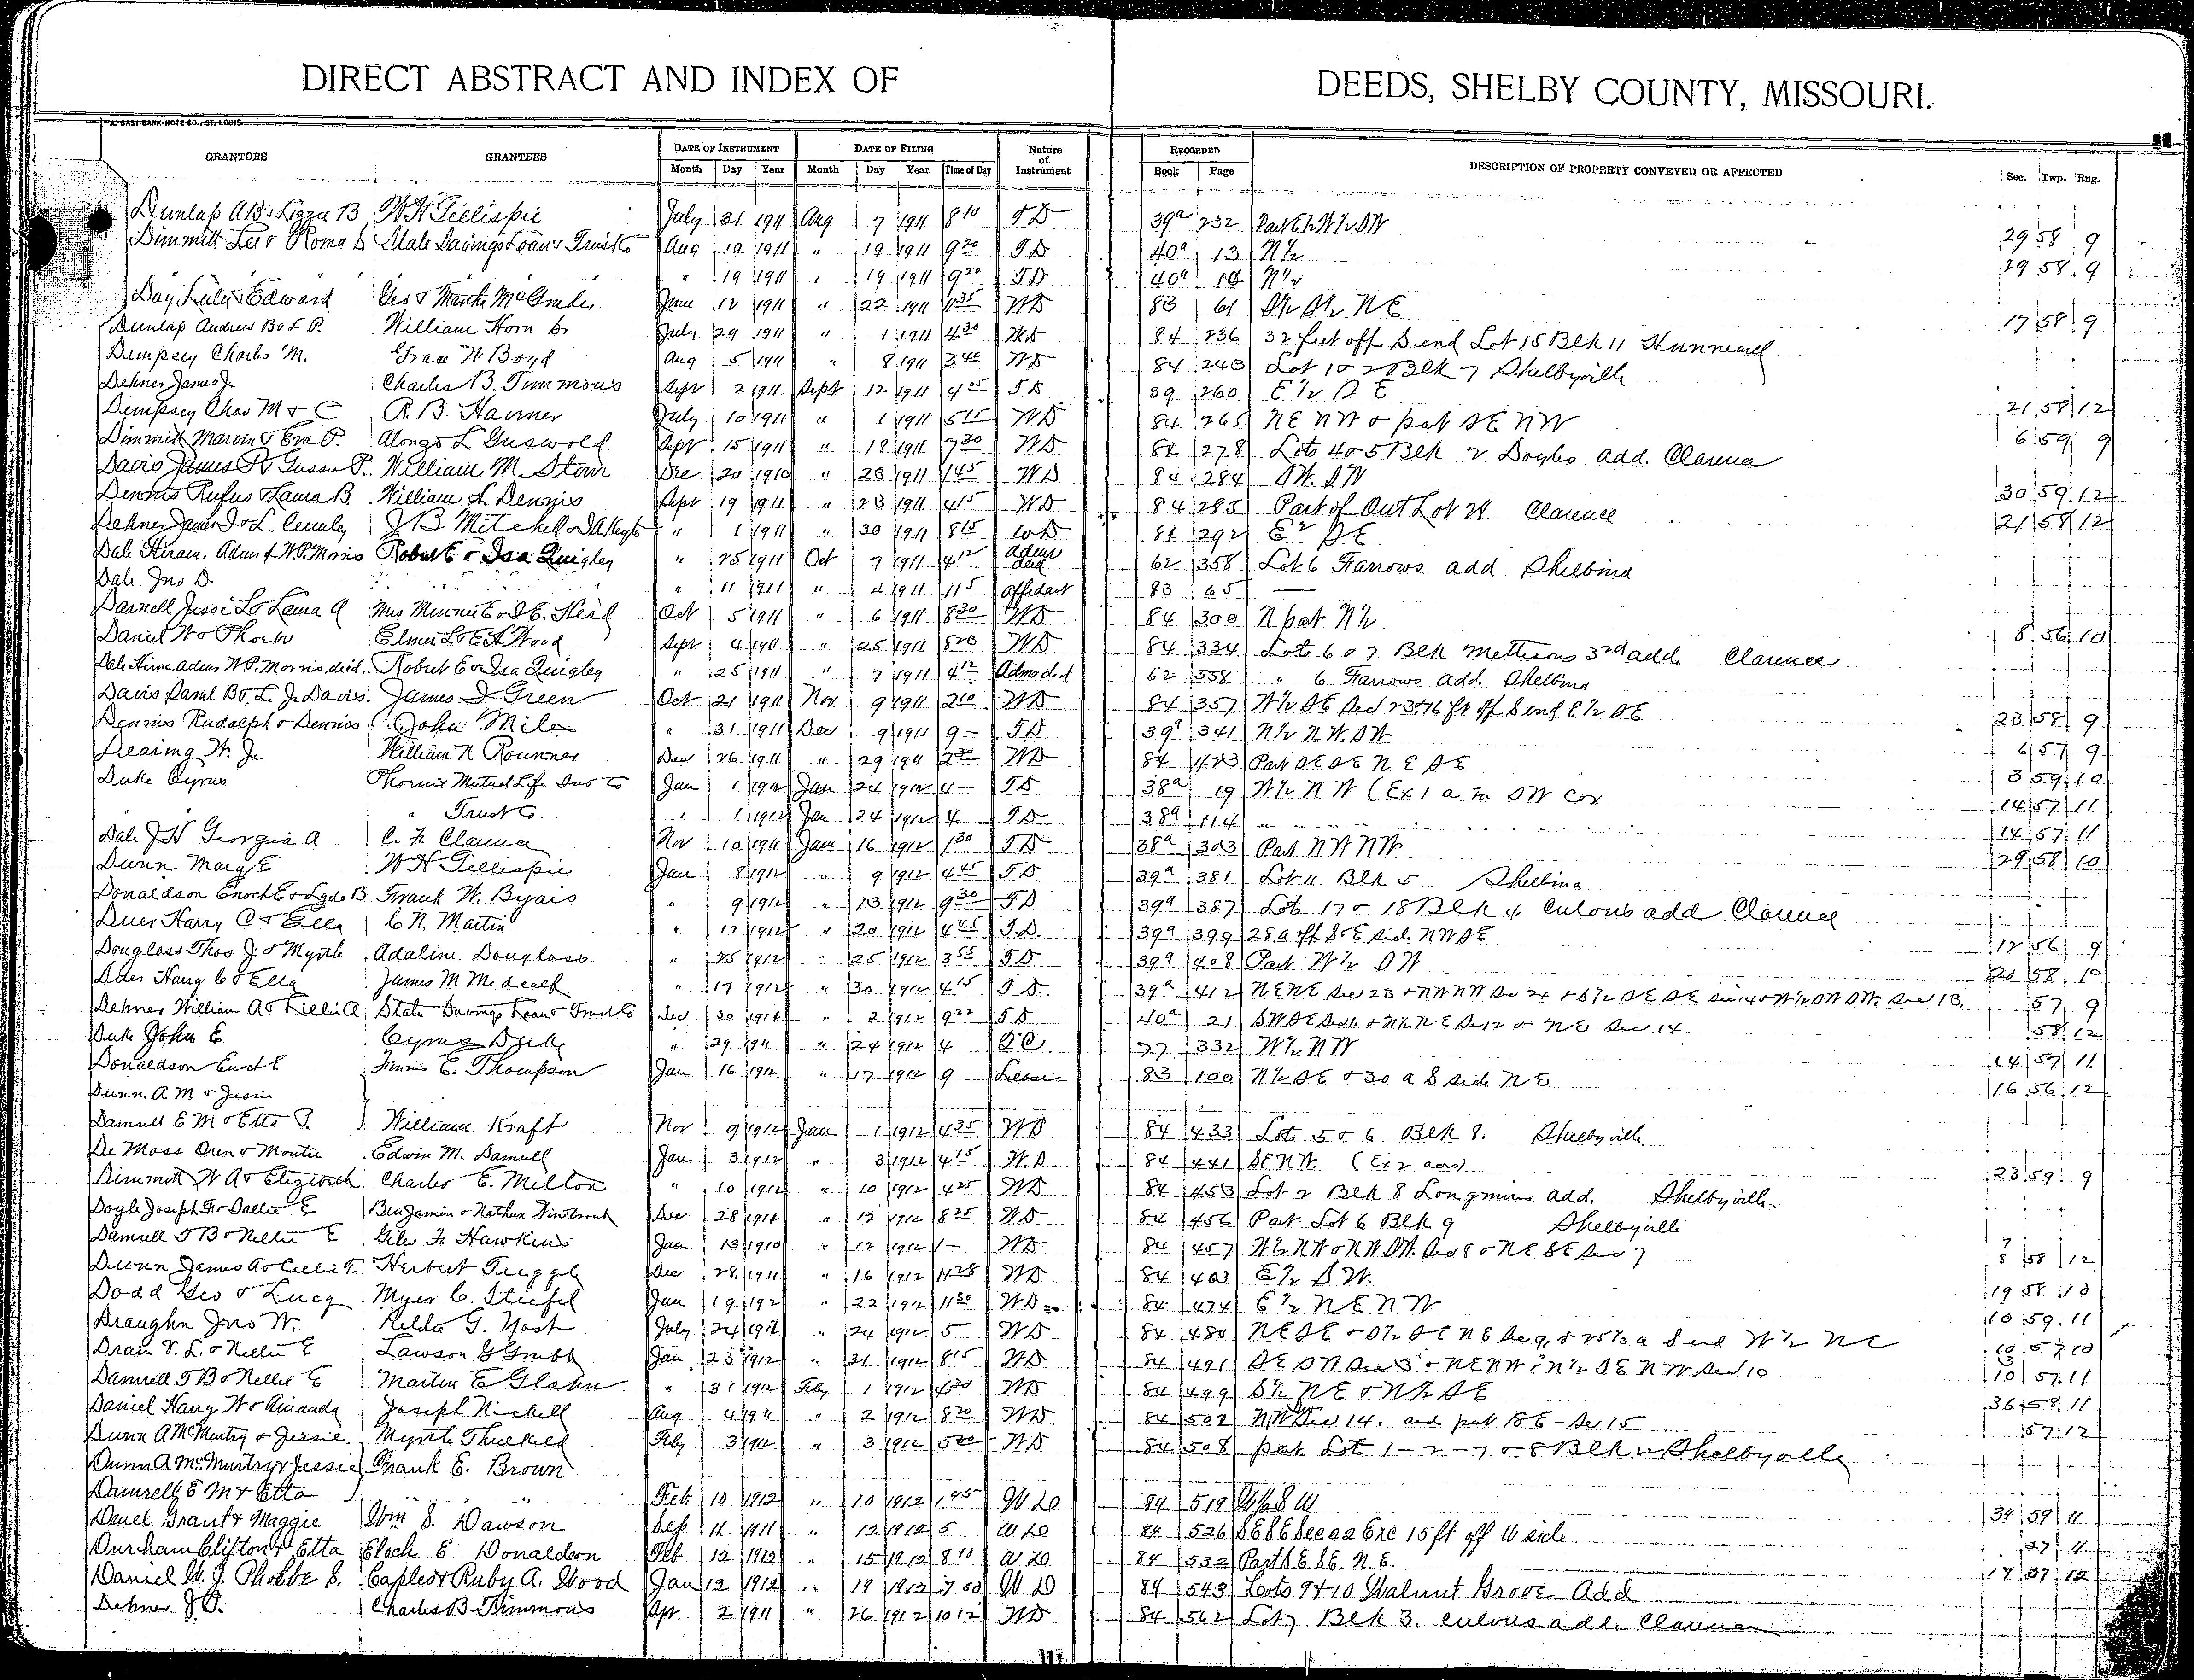 DIRECT ABSTRACT AND INDEX OF DEEDS, SHELBY COUNTY, MISSOURI.
A. GAST BANK-NOTE CO., ST. LOUIS
GRANTORS GRANTEES DATE OF INSTRUMENT DATE OF FILING Nature of Instrument RECORDED DESCRIPTION OF PROPERTY CONVEYED OR AFFECTED Sec. Twp. Rng.
Month Day Year Month Day Year Time of Day Book Page
Dunlap A B & Lizzie B W H Gillispie July 31 1911 Aug 7 1911 8 10 T D 39a 232 Part E 1/2 W 1/2 SW 29 58 9
Dimmitt Lee & Roma State Savings Loan & Trust Co Aug 19 1911 " 19 1911 9 20 T D 40a 13 N 1/2 29 58 9
" 19 1911 " 19 1911 9 20 T D 40a 14 N 1/2
Day Lula & Edward Geo & Mamie McGruder June 12 1911 " 22 1911 11 35 WD 83 61 NE 17 58 9
Dunlap Andrew B & L P. William Horn Sr July 29 1911 " 1 1911 4 30 WD 84 236 32 feet off S end Lot 15 Blk 11 Hunnewell
Dempsey Charles M. Grace W Boyd Aug 5 1911 " 8 1911 3 40 WD 84 243 Lot 10 Blk 7 Shelbyville
Dehner James J. Charles B. Timmons Sept 2 1911 Sept 12 1911 4 05 T D 39 260 E 1/2 S E 21 58 12
Dempsey Chas M & C R. B. Havrner July 10 1911 " 1 1911 5 15 WD 84 265 NE NW & part SE NW 6 59 9
Dimmitt Marvin & Eva P. Alonzo L Griswold Sept 15 1911 " 18 1911 7 30 WD 84 278 Lots 4 & 5 Blk 2 Doyles add. Clarence
Davis James P & Gussie P. William M. Stone Dec 20 1910 " 23 1911 1 45 WD 84 284 SW. SW 30 59 12
Dennis Rufus & Laura B William A Dennis Sept 19 1911 " 23 1911 4 15 WD 84 285 Part of Out Lot 21 Clarence
Dehner James J & L. J B. Mitchell " 1 1911 " 30 1911 8 15 WD 84 292 E 1/2 SE 21 58 12
Dale Hiram. Admr of W.P. Morris Robert E & Isa Quigley " 25 1911 Oct 7 1911 4 12 Admr deed 62 358 Lot 6 Farrows add. Shelbina
Dale Jno D " 11 1911 " 4 1911 11 5 affidavit 83 65
Darnell Jesse L & Laura A Mrs Minnie E & J E. Head Oct 5 1911 " 6 1911 8 30 WD 84 300 N part N 1/2 8 56 10
Daniel W & Phoebe Elmer L & E A Wood Sept 4 1911 " 25 1911 8 20 WD 84 334 Lots 6 & 7 Blk 3rd add. Clarence
Dale Hirm. admr W.P. Morris decd. Robert E & Isa Quigley " 25 1911 " 7 1911 4 12 Admr ded 62 358 " 6 Farrows add. Shelbina
Davis Saml B & L. J. Davis. James I Green Oct 21 1911 Nov 9 1911 2 10 WD 84 357 W 1/2 SE 23 58 9
Dennis Rudolph & Dennis C. John Miles " 31 1911 Dec 9 1911 9 - T D 39a 341 N 1/2 N W. SW 6 57 9
Deaing W. Je William N Rounner Dec 26 1911 " 29 1911 2 30 WD 84 423 Part SE SE NE SE 3 59 10
Duke Cyrus Phoenix Mutual Life Ins Co Jan 1 1912 Jan 24 1912 4 - T D 38a 19 W 1/2 NW (Ex 1 a in SW cor 14 57 11
" Trust Co " 1 1912 Jan 24 1912 4 T D 38a 114 " 14 57 11
Dale J H Georgia A C. F. Clauna Nov 10 1911 Jan 16 1912 1 30 T D 38a 303 Part NW NW 29 58 10
Dunn Mary E W H Gillispie Jan 8 1912 " 9 1912 4 45 T D 39a 381 Lot 11 Blk 5 Shelbina
Donaldson Enoch E & Lyda B Frank W. Byars " 9 1912 " 13 1912 9 30 T D 39a 387 Lots 17 & 18 Blk 4 add Clarence
Duer Harry C & Ella C N. Martin " 17 1912 " 20 1912 4 45 T D. 39a 399 25 a off S E side NW SE 12 56 9
Douglass Thos J. & Myrtle Adaline Douglass " 25 1912 " 25 1912 3 55 T D 39a 408 Part W 1/2 SW 20 58 10
Duer Harry C & Ella James M Medcalf " 17 1912 " 30 1912 4 15 T D. 39a 412 NE NE Sec 23 & NW NW Sec 24 57 9
Dehner William A & Lillie A State Savings Loan & Trust Co Dec 30 1911 " 2 1912 9 22 T D 40a 21 & NE Sec 14 58 12
Duke John E Cyrus Duke " 29 1911 " 24 1912 4 Q C 77 332 W 1/2 NW 14 57 11
Donaldson E Finnis E. Thompson Jan 16 1912 " 17 1912 9 Lease 83 100 N 1/2 SE & 30 a S side NE 16 56 12
Dunn. A M & Jessie
Damrell E M & Etta P. William Kraft Nov 9 1912 Jan 1 1912 4 35 WD 84 433 Lots 5 & 6 Blk 8. Shelbyville
De Moss Oren & Montie Edwin M. Damrell Jan 3 1912 " 3 1912 4 15 W.D 84 441 SE NW. (Ex 2 acrs) 23 59 9
Dimmitt W A & Elizabeth Charles E. Melton " 10 1912 " 10 1912 4 25 WD 84 453 Lot 2 Blk 8 Longmires add. Shelbyville
Doyle Joseph F & Sallie E Benjamin & Nathan Dec 28 1911 " 12 1912 8 25 WD 84 456 Part Lot 6 Blk 9 Shelbyville
Damrell T B & Nellie E Giles F. Hawkins Jan 13 1910 " 12 1912 1 - WD 84 457 W 1/2 NW & NW SW. Sec 8 & NE SE Sec 7 7 8 58 12
Dunn James A & Callie T. Herbert Tuggle Dec 28 1911 " 16 1912 11 28 WD 84 463 E 1/2 SW. 19 58 10
Dodd Geo & Lucy Myer C. Stiefel Jan 19 1912 " 22 1912 11 30 WD 84 474 E 1/2 NE NW 10 59 11
Draughn Jno W. Relda G. Yost July 24 1911 " 24 1912 5 WD 84 480 10 57 10
Drain V. L. & Nellie E Lawson G Grubb Jan 23 1912 " 31 1912 8 15 WD 84 491 SE SW Sec 3 & NE NW & N 1/2 SE NW Sec 10 3 10 57 11
Damrell T B & Nellie E Martin E Glahn " 31 1912 Feby 1 1912 4 30 WD 84 499 S 1/2 NE & N 1/2 SE 36 58 11
Daniel Harry W & Amanda Joseph Nickell Aug 4 1911 " 2 1912 8 20 WD 84 502 NW Sec 14. and part Sec 15 57 12
Dunn A McMurtry & Jessie. Myrtle Thielkeld Feby 3 1912 " 3 1912 5 00 WD 84 508 part Lot 1-2-7 & 8 Blk Shelbyville
Dunn A McMurtry & Jessie Frank E. Brown
Damrell E M & Etta Feb 10 1912 " 10 1912 1 45 W. D 84 519 W 1/2 SW 34 59 11
Deuel Grant & Maggie Wm S. Dawson Sep 11 1911 " 12 1912 5 W D 84 526 SE SE Sec 22 Exc 15 ft off W side 57 11
Durham Clifton & Etta Eloch E Donaldson Feb 12 1912 " 15 1912 8 10 W D 84 532 Part S E. SE. N. E. 17 57 12
Daniel W. J. Phoebe S. Caples & Ruby A. Wood Jan 12 1912 " 19 1912 7 50 W D 84 543 Lots 9 & 10 Walnut Grove Add
Dehner J D. Charles B. Timmons Apr 2 1911 " 26 1912 10 12 WD 84 562 Lot 7 Blk 3. add. Clarence